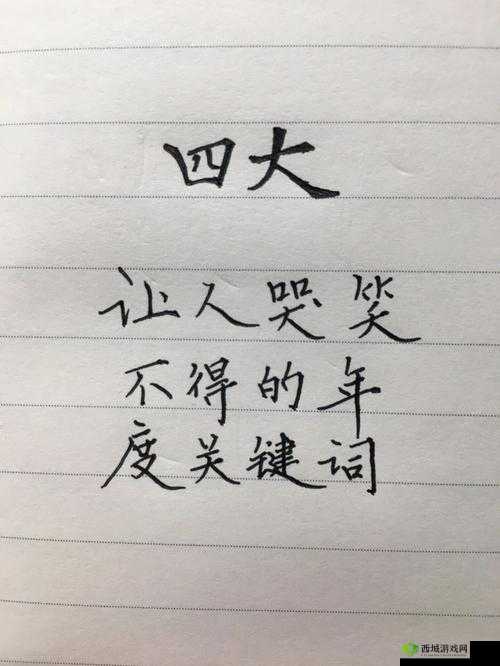 四大
让人哭笑
不得的年
度关键词
西域游戏网